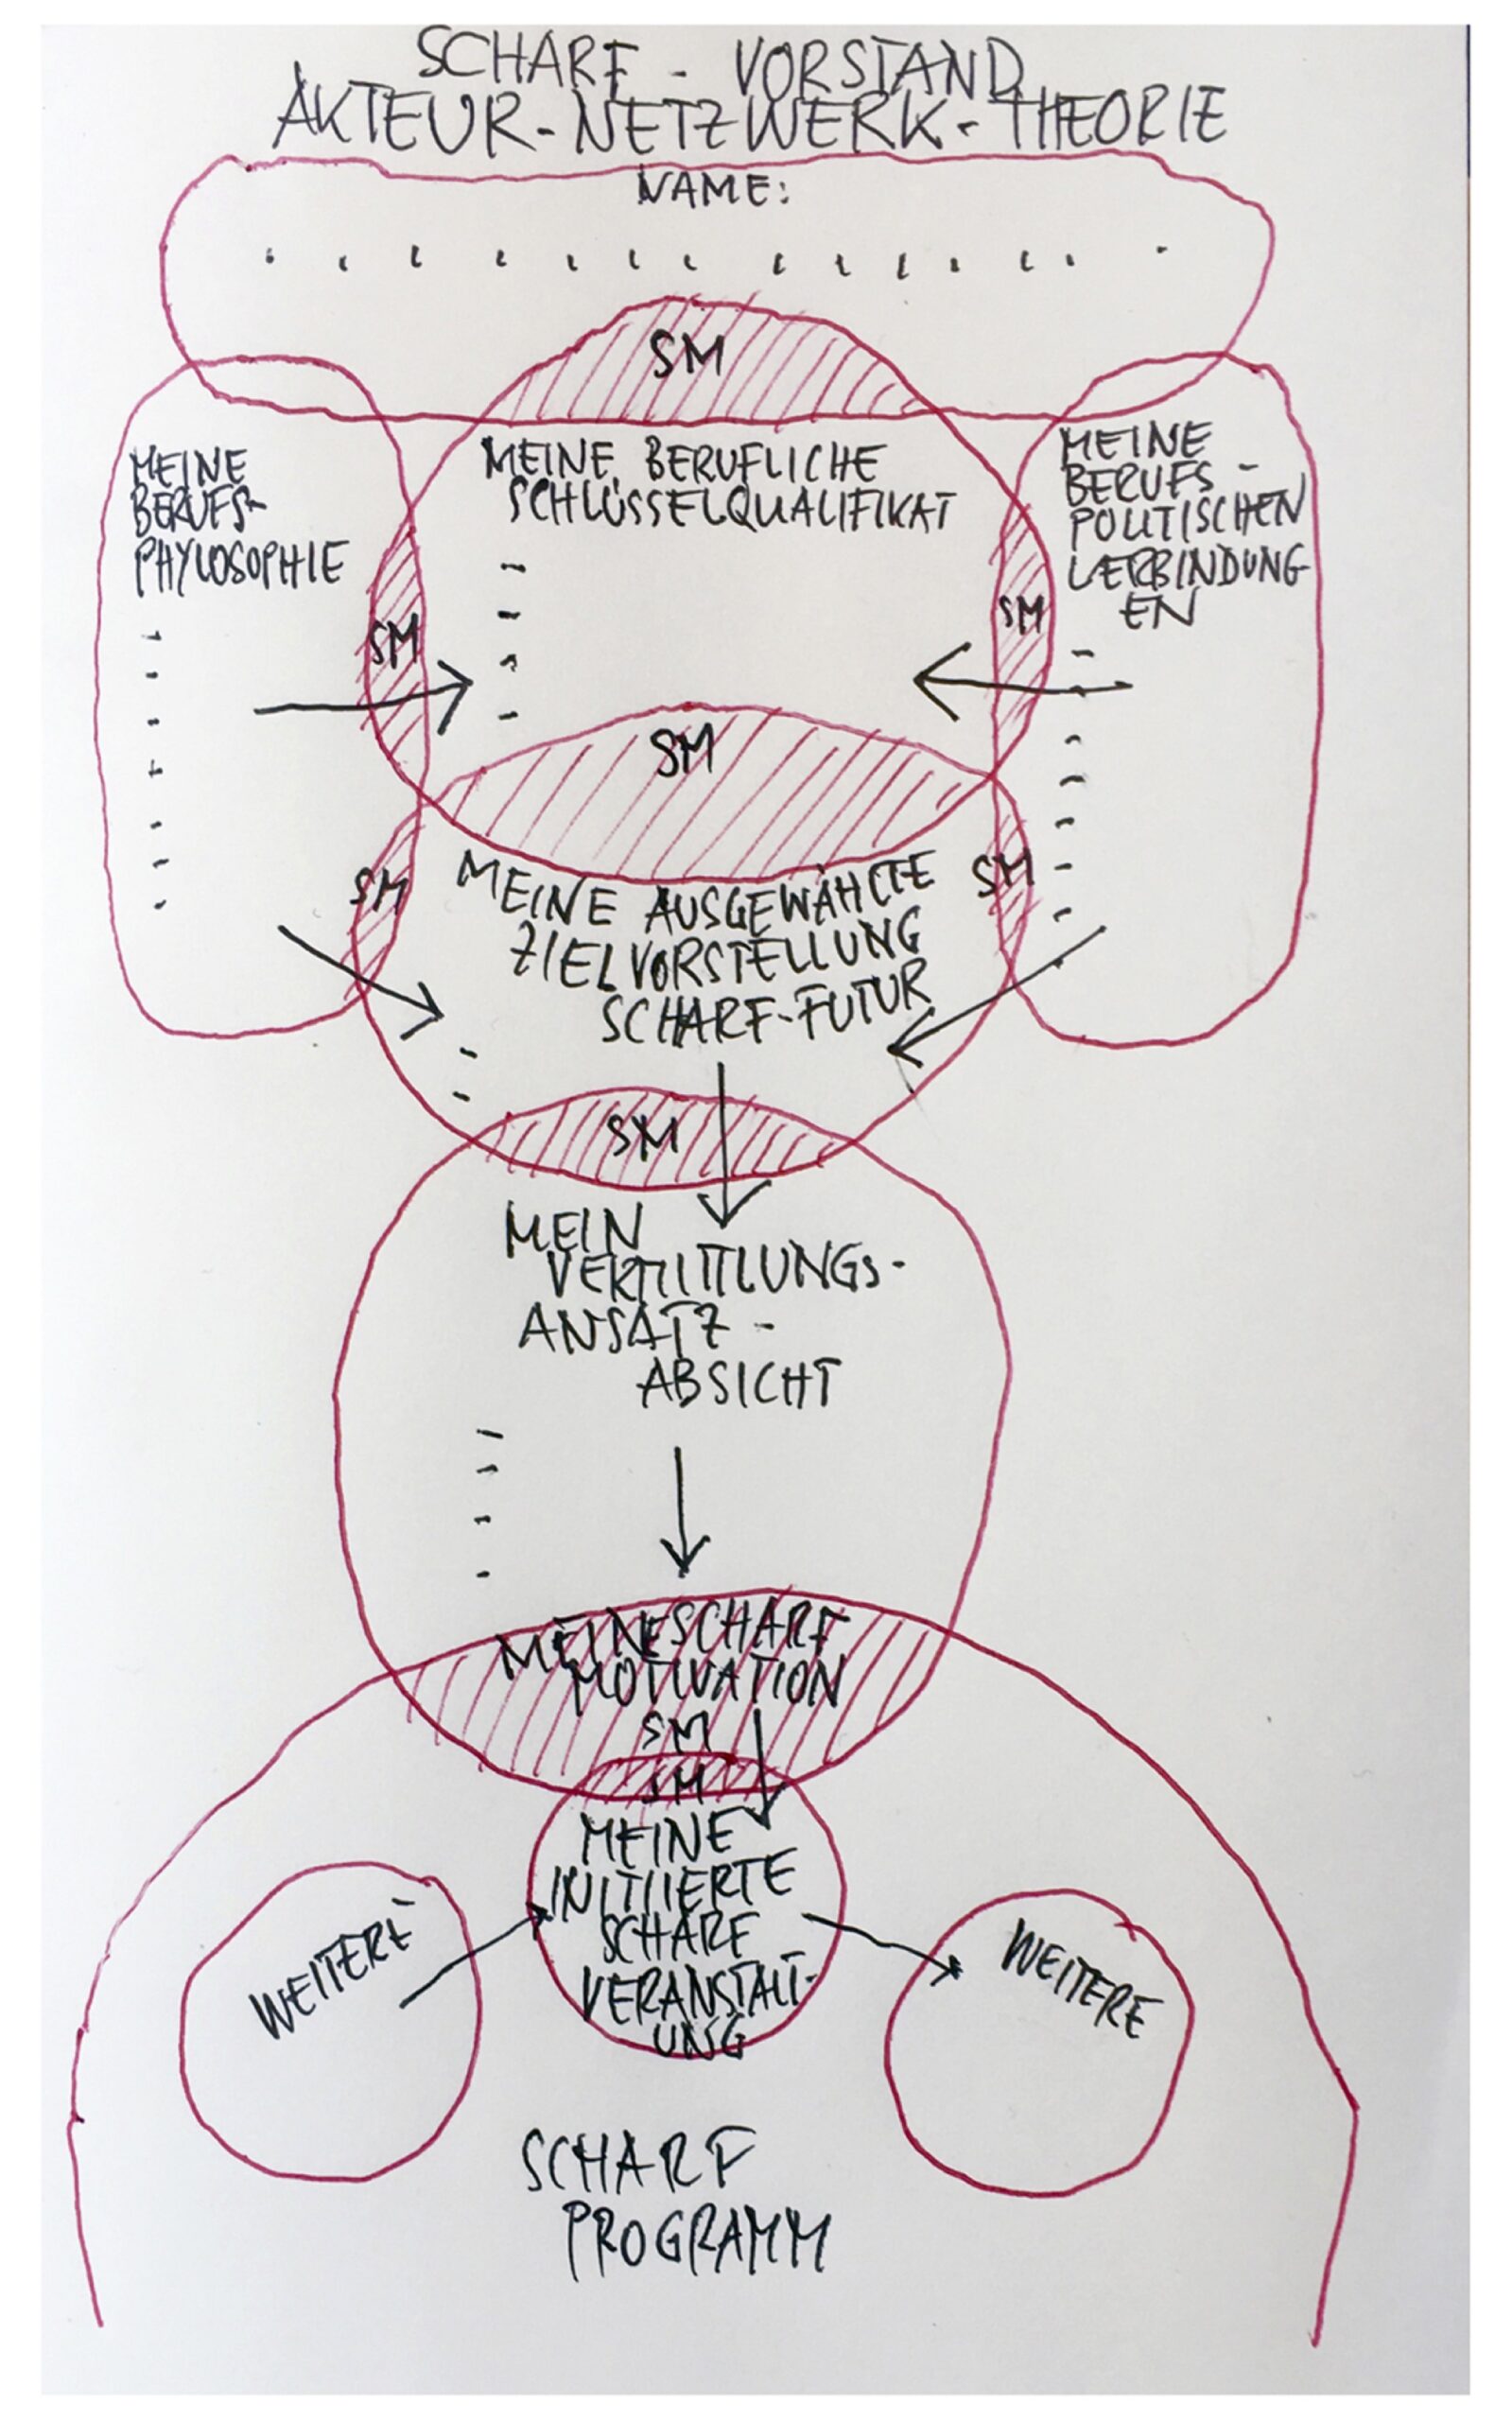 SCHARF - VORSTAND
AKTEUR-NETZWERK-THEORIE
NAME:
SM
MEINE
BERUFS-
PHYLOSOPHIE
MEINE BERUFLICHE
SCHLÜSSELQUALIFIKAT
MEINE
BERUFS-
POLITISCHEN
VERBINDUNG
EN
SM
SM
SM
SM
SM
MEINE AUSGEWÄHLTE
ZIELVORSTELLUNG
SCHARF-FUTUR
SM
MEIN
VERMITTLUNGS-
ANSATZ-
ABSICHT
MEINE SCHARF
MOTIVATION
SM
SM
MEINE
INITIIERTE
SCHARF
VERANSTALT-
UNG
WEITERE
WEITERE
SCHARF
PROGRAMM